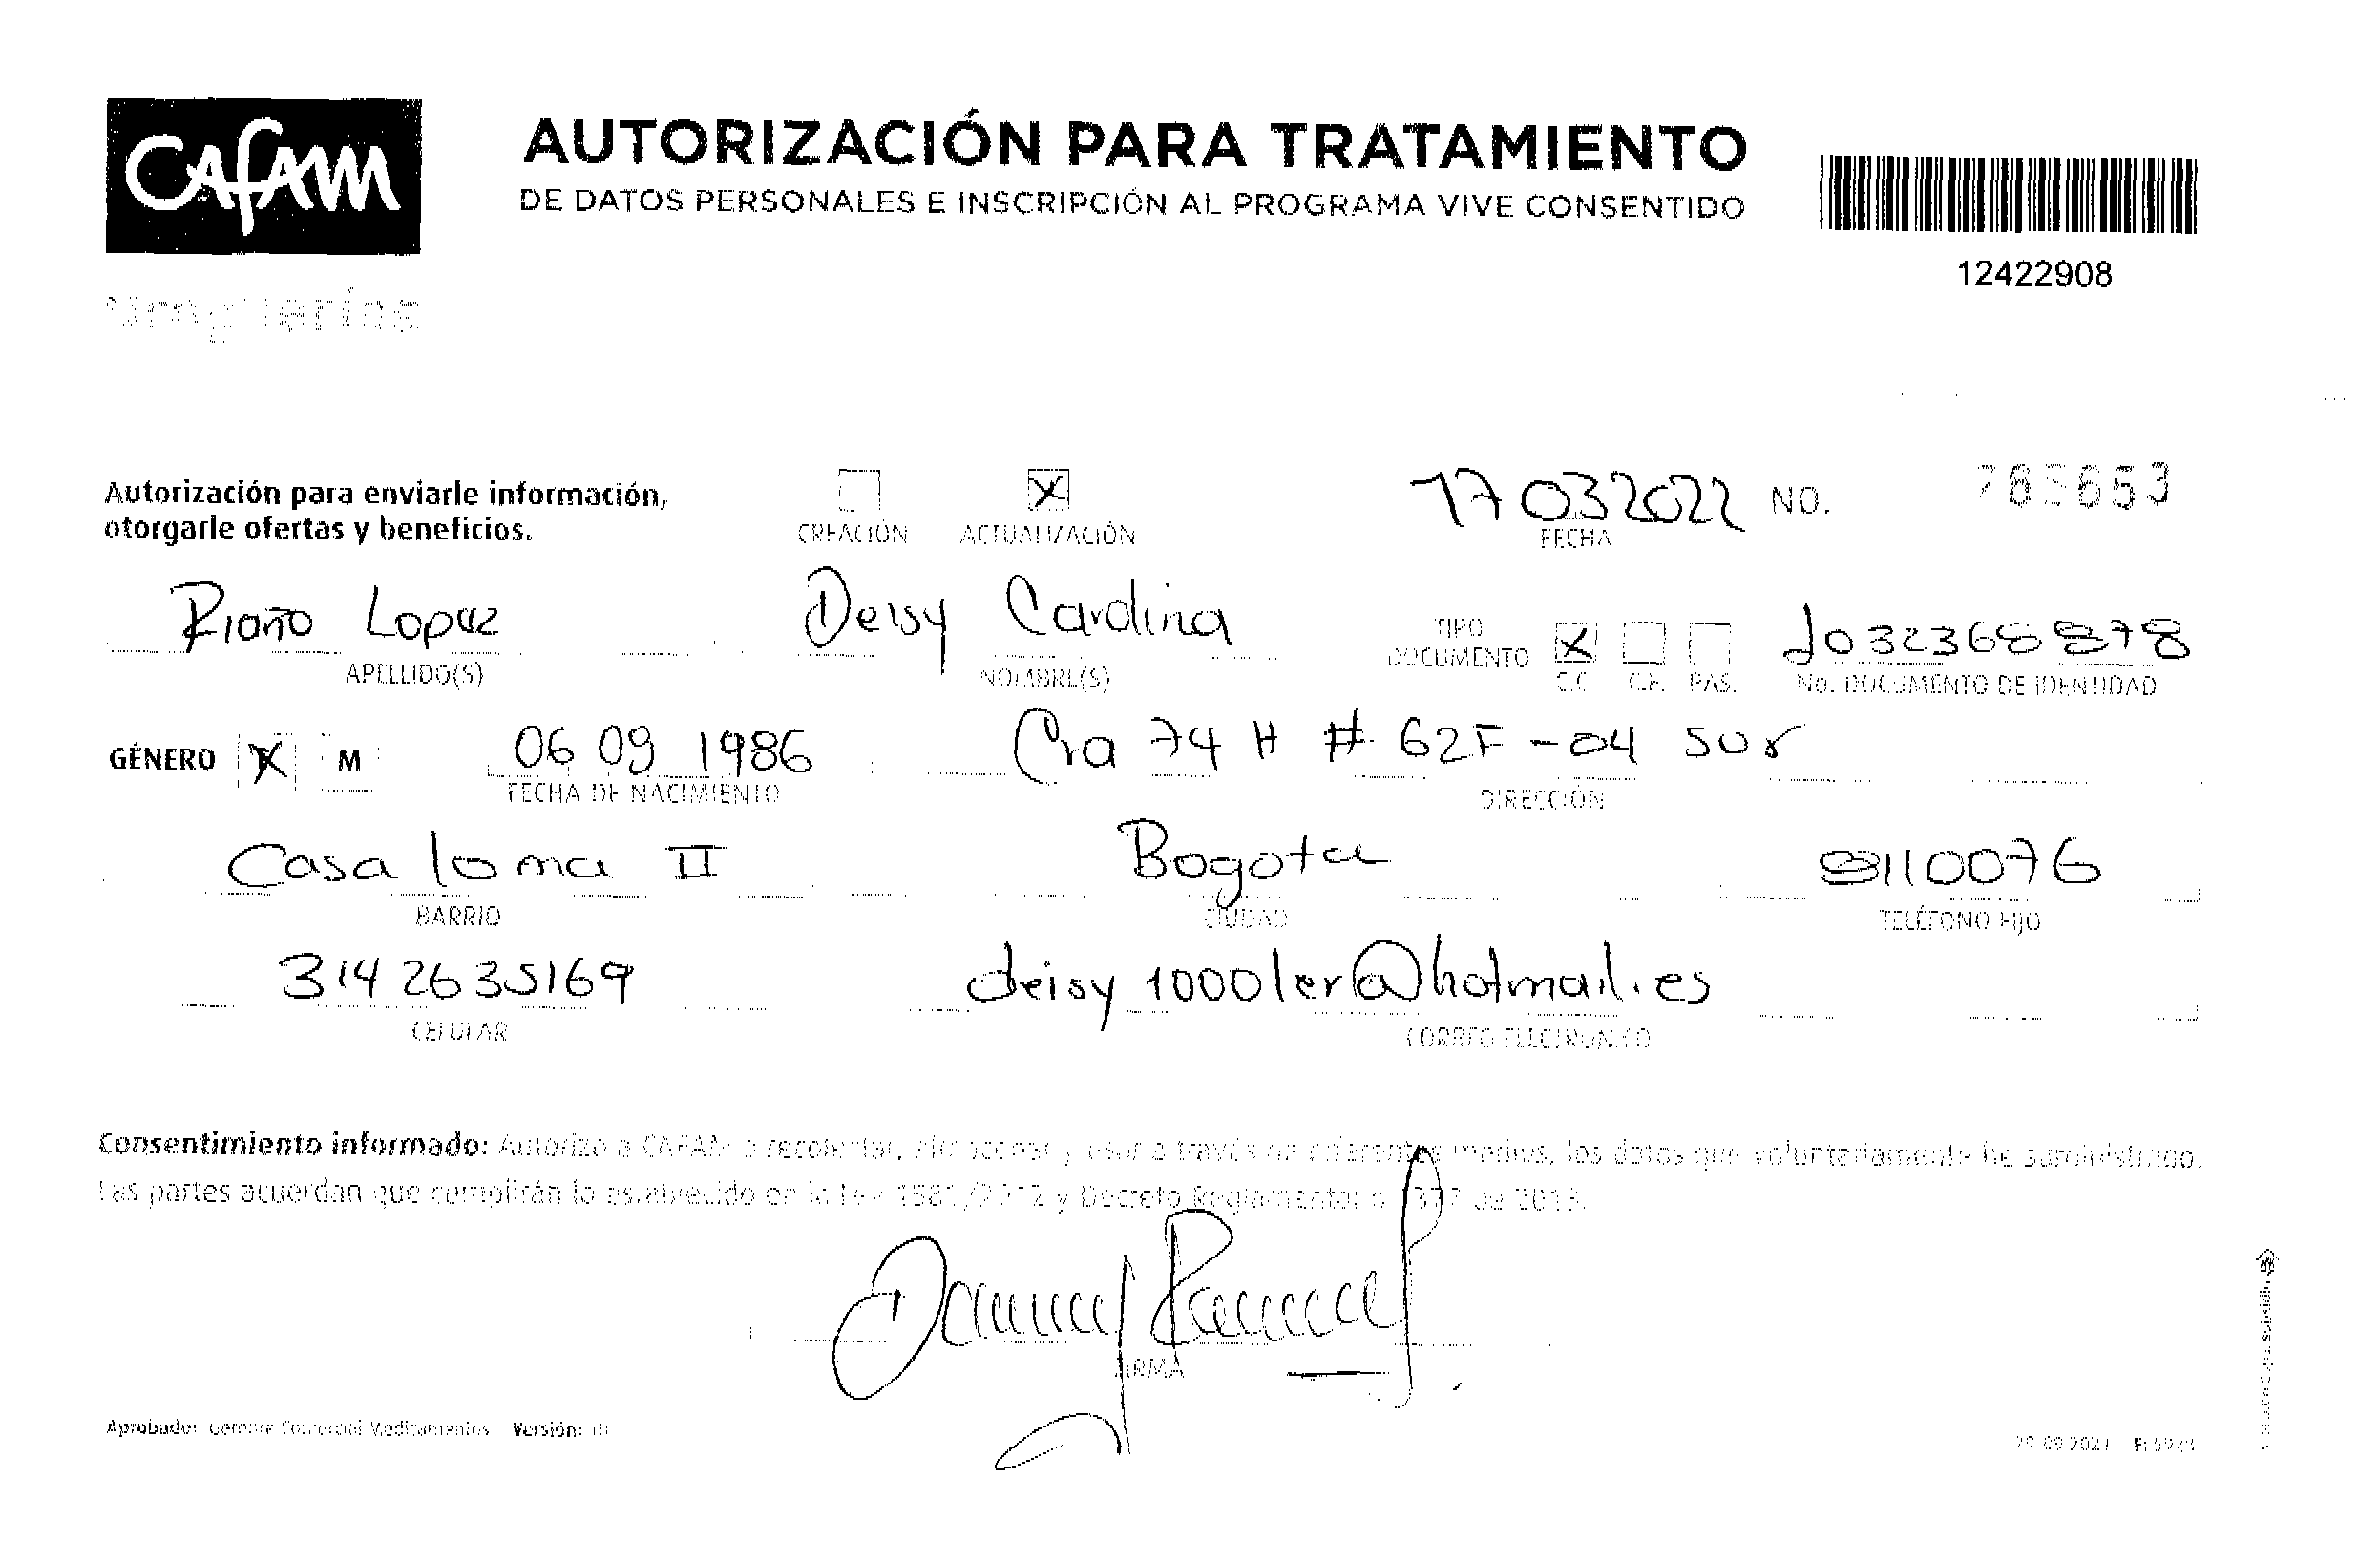 CAFAM
AUTORIZACIÓN PARA TRATAMIENTO
DE DATOS PERSONALES E INSCRIPCIÓN AL PROGRAMA VIVE CONSENTIDO
12422908
Autorización para enviarle información,
otorgarle ofertas y beneficios.
CREACIÓN ACTUALIZACIÓN
17 03 2022 NO.
FECHA
Riaño Lopez Deisy Carolina
TIPO DOCUMENTO X 1032368878
APELLIDO(S) NOMBRE(S) C.C. C.E. PAS. No. DOCUMENTO DE IDENTIDAD
GÉNERO X M 06 09 1986 Cra 74 H # 62F - 04 sur
FECHA DE NACIMIENTO DIRECCIÓN
Casa loma II Bogota 8110076
BARRIO CIUDAD TELÉFONO FIJO
314 2635169 deisy1000ler@hotmail.es
CELULAR CORREO ELECTRÓNICO
Consentimiento informado: Autorizo a CAFAM a recolectar, almacenar y usar a través de diferentes medios, los datos que voluntariamente he suministrado.
Las partes acuerdan que cumplirán lo establecido en la Ley 1581/2012 y Decreto Reglamentario 1377 de 2013.
FIRMA
Aprobado: Gerente Comercial Medicamentos Versión: